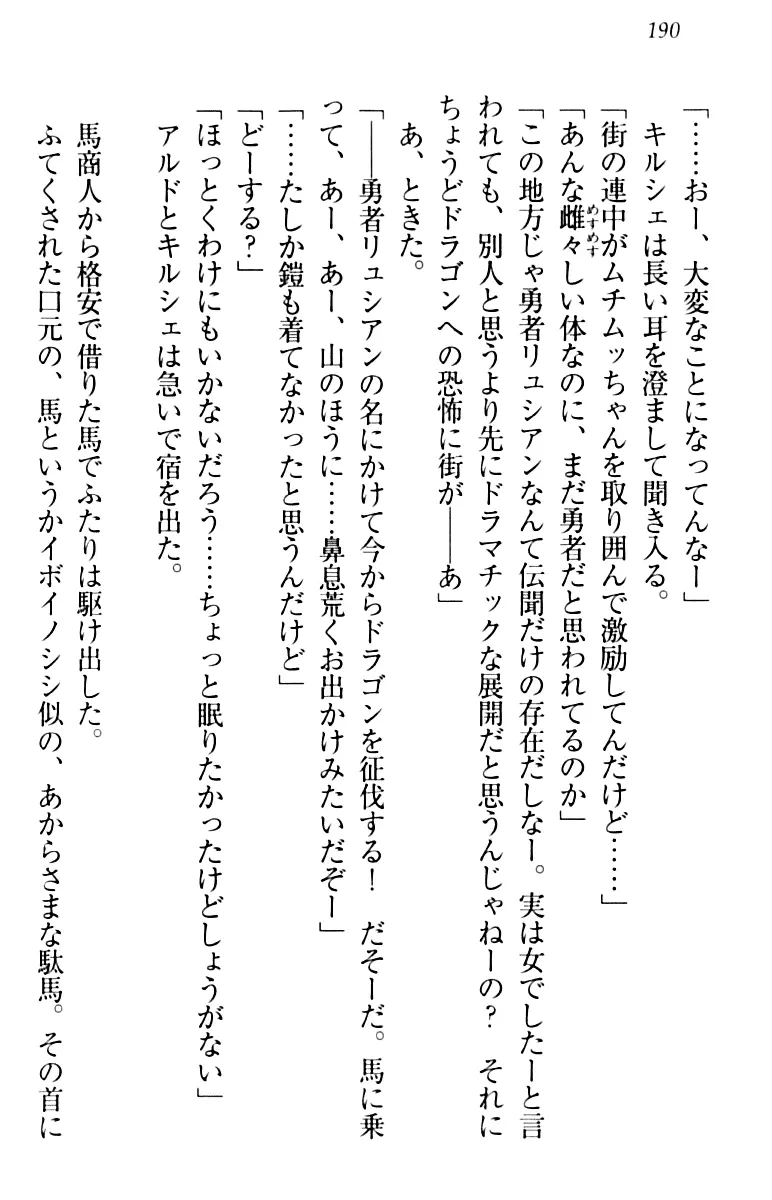 190
「……おー、大変なことになってんなー」
キルシェは長い耳を澄まして聞き入る。
「街の連中がムチムッちゃんを取り囲んで激励してんだけど……」
「あんな雌々しい体なのに、まだ勇者だと思われてるのか」
めすめす
「この地方じゃ勇者リュシアンなんて伝聞だけの存在だしなー。実は女でしたーと言
われても、別人と思うより先にドラマチックな展開だと思うんじゃねーの？　それに
ちょうどドラゴンへの恐怖に街が――あ」
あ、ときた。
「――勇者リュシアンの名にかけて今からドラゴンを征伐する！　だそーだ。馬に乗
って、あー、あー、山のほうに……鼻息荒くお出かけみたいだぞー」
「……たしか鎧も着てなかったと思うんだけど」
「どーする？」
「ほっとくわけにもいかないだろう……ちょっと眠りたかったけどしょうがない」
アルドとキルシェは急いで宿を出た。
馬商人から格安で借りた馬でふたりは駆け出した。
ふてくされた口元の、馬というかイボイノシシ似の、あからさまな駄馬。その首に